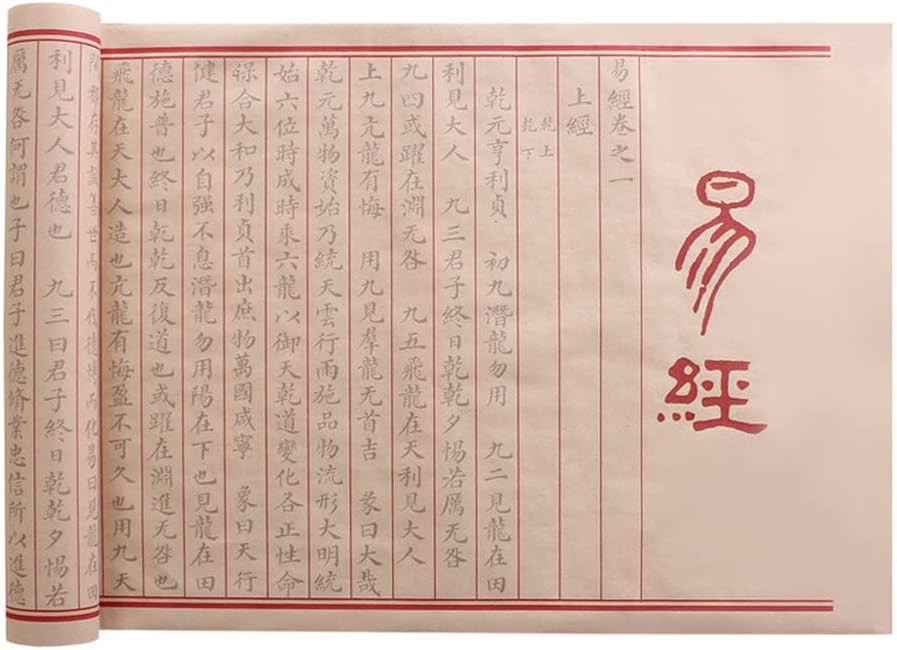 易經
易經卷之一
上經
乾上
乾下
乾元亨利貞 初九潛龍勿用 九二見龍在田
利見大人 九三君子終日乾乾夕惕若厲无咎
九四或躍在淵无咎 九五飛龍在天利見大人
上九亢龍有悔 用九見羣龍无首吉 彖曰大哉
乾元萬物資始乃統天雲行雨施品物流形大明
始六位時成時乘六龍以御天乾道變化各正性命
保合大和乃利貞首出庶物萬國咸寧 象曰天行
健君子以自强不息潛龍勿用陽在下也見龍在田
德施普也終日乾乾反復道也或躍在淵進无咎也
飛龍在天大人造也亢龍有悔盈不可久也用九天
存其誠善世而不伐德博而化易曰見龍在田
利見大人君德也 九三曰君子終日乾乾夕惕若
厲无咎何謂也子曰君子進德脩業忠信所以進德